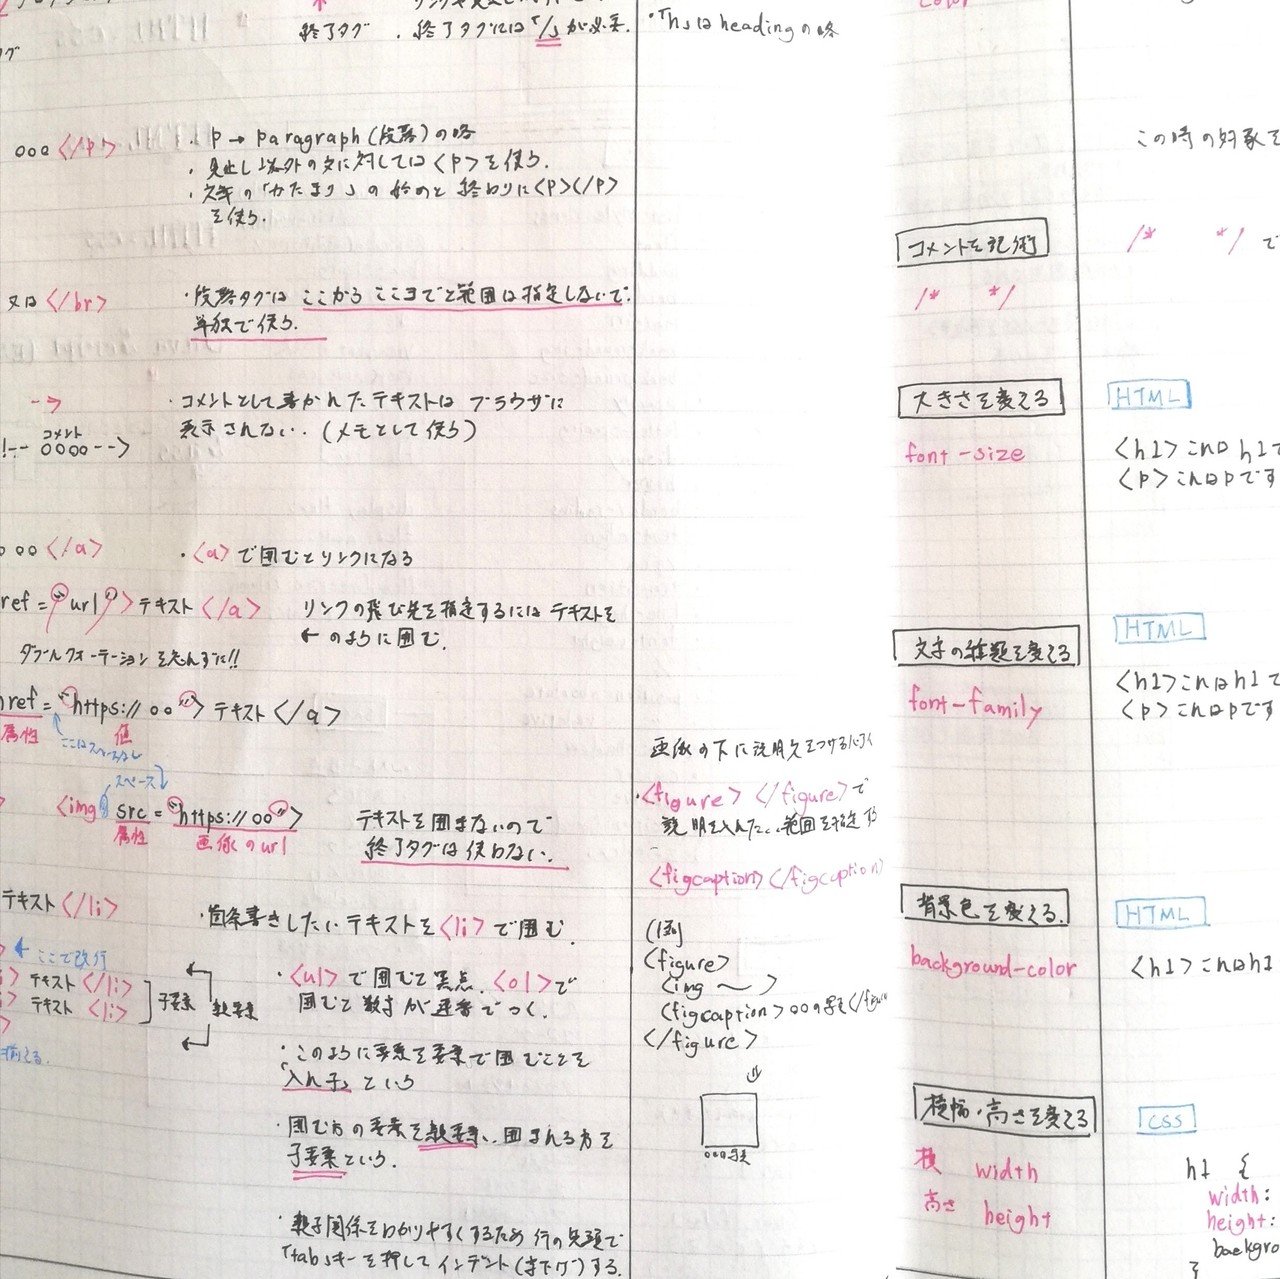 終了タグ ・終了タグには「/」が必要.
・「h」は heading の略
color
○○○</p>
・p → paragraph(段落)の略
・見出し以外の文に対しては<p>を使う.
・文章の「かたまり」の始めと終わりに<p></p>
を使う.
又は</br>
・改行タグは ここから ここまでと範囲は指定しないで
単独で使う.
-->
・コメントとして書かれたテキストは ブラウザに
表示されない. (メモとして使う)
コメント
!-- ○○○○ -->
○○○</a>
・<a>で囲むとリンクになる
ref="url">テキスト</a>
リンクの飛び先を指定するには テキストを
←のように囲む.
ダブルクォーテーションを忘れずに!!
href="https://○○">テキスト</a>
属性 値
スペース
<img src="https://○○">
属性 画像のurl
テキストを囲まないので
終了タグは使わない.
テキスト</li>
・箇条書きしたいテキストを<li>で囲む.
← ここで改行
テキスト</li>
テキスト<li>
子要素 親要素
揃える.
・<ul>で囲むと黒点. <ol>で
囲むと数字が連番でつく.
・このように要素を要素で囲むことを
「入れ子」という
・囲む方の要素を親要素、囲まれる方を
子要素という.
・親子関係をわかりやすくするため 行の先頭で
「tab」キーを押してインデント(字下げ)する.
画像の下に説明文をつける
・<figure></figure>で
説明を入れたい範囲を指定する
<figcaption></figcaption>
(例)
<figure>
<img 〜>
<figcaption>○○の写真</figu
</figure>
⇓
○○○写真
この時の対象を
コメントを記術
/* */
/* */ で
大きさを変える
font-size
HTML
<h1>これはh1で
<p>これはpです
文字の種類を変える
font-family
HTML
<h1>これはh1で
<p>これはpです
背景色を変える.
background-color
HTML
<h1>これはh1
横幅・高さを変える
横 width
高さ height
CSS
h1 {
width:
height:
backgro
}